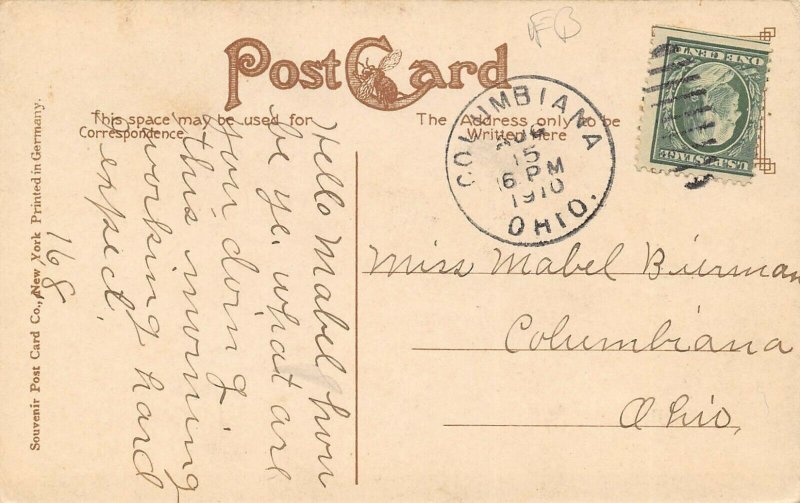 FB
Post Card
This space may be used for
Correspondence
The Address only to be
Written here
COLUMBIANA
AUG
15
6 PM
1910
OHIO.
U.S. POSTAGE
ONE CENT
Hello Mabel how
be ye. what are
you doing
this morning
working hard
expect.
168
Miss Mabel Bierman
Columbiana
Ohio,
Souvenir Post Card Co., New York Printed in Germany.